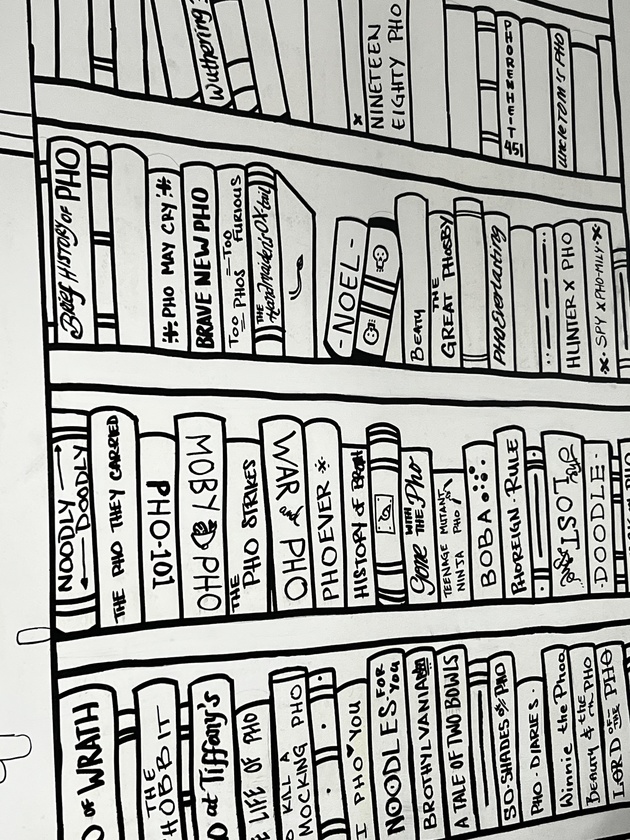 Wuthering
NINETEEN
EIGHTY PHO
PHORENHEIT
451
UNCLE TOM'S PHO
BRIEF HISTORY OF PHO
PHO MAY CRY
BRAVE NEW PHO
TOO PHOS
TOO FURIOUS
THE Handmaiden's OXtail
-NOEL-
BEATY
THE
GREAT PHOSBY
PHOEverlasting
HUNTER X PHO
SPY X PHO-MILY
NOODLY
DOODLY
THE PHO THEY CARRIED
PHO-101
MOBY PHO
THE
PHO STRIKES
WAR & PHO
PHOEVER
HISTORY of BROTH
Gone WITH
THE Pho
TEENAGE MUTANT
NINJA PHO
BOBA
PHOREIGN·RULE
TOST
DOODLE
O OF WRATH
THE
HOBBIT
O at Tiffany's
E LIFE OF PHO
O KILL A
MOCKING PHO
I PHO YOU
NOODLES FOR
You
BROTHYLVANIA
A TALE OF TWO BOWLS
50·SHADES of PHO
PHO·DIARIES·
Winnie the Phoo
BEAUTY & the PHO
LORD OF THE PHO